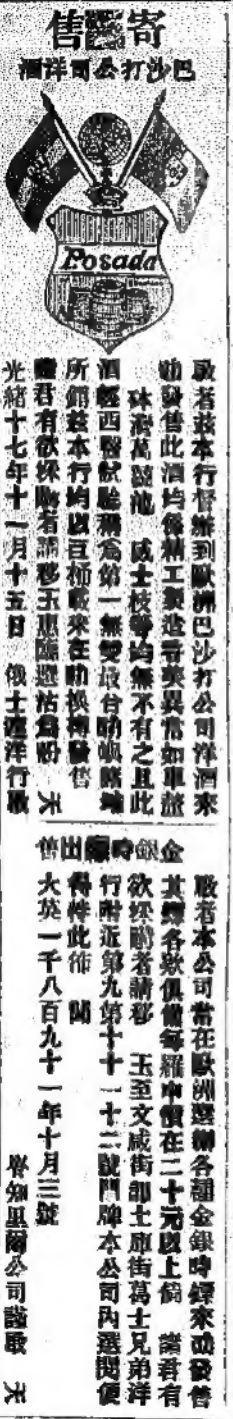 寄售
巴沙打公司洋酒
Posada
敬者茲本行督辦到歐洲巴沙打公司洋酒來
叻發售此酒均係精工製造香美異常如車厘
砵酒萬 地 威士枝等均無不有之且此
酒經西醫試驗稱為第一無雙最合叻嶼
所銷茲本行均以巨桶載來在叻換樽發售
諸君有欲採取者請移玉惠臨 沽為盼 天
光緒十七年十一月十五日 俄士 洋行啟
金銀時鏢出售
敬者本公司常在歐洲選辦各種金銀時鏢來叻發售
其鏢各欵俱備每羅申價在二十元以上倘 諸君有
欲採購者請移 玉至文咸街即土庫街葛士兄弟洋
行附近第九第十十一十二號門牌本公司內選閱便
得特此佈 聞
大英一千八百九十一年十月三號
知里爾公司謹啟 天